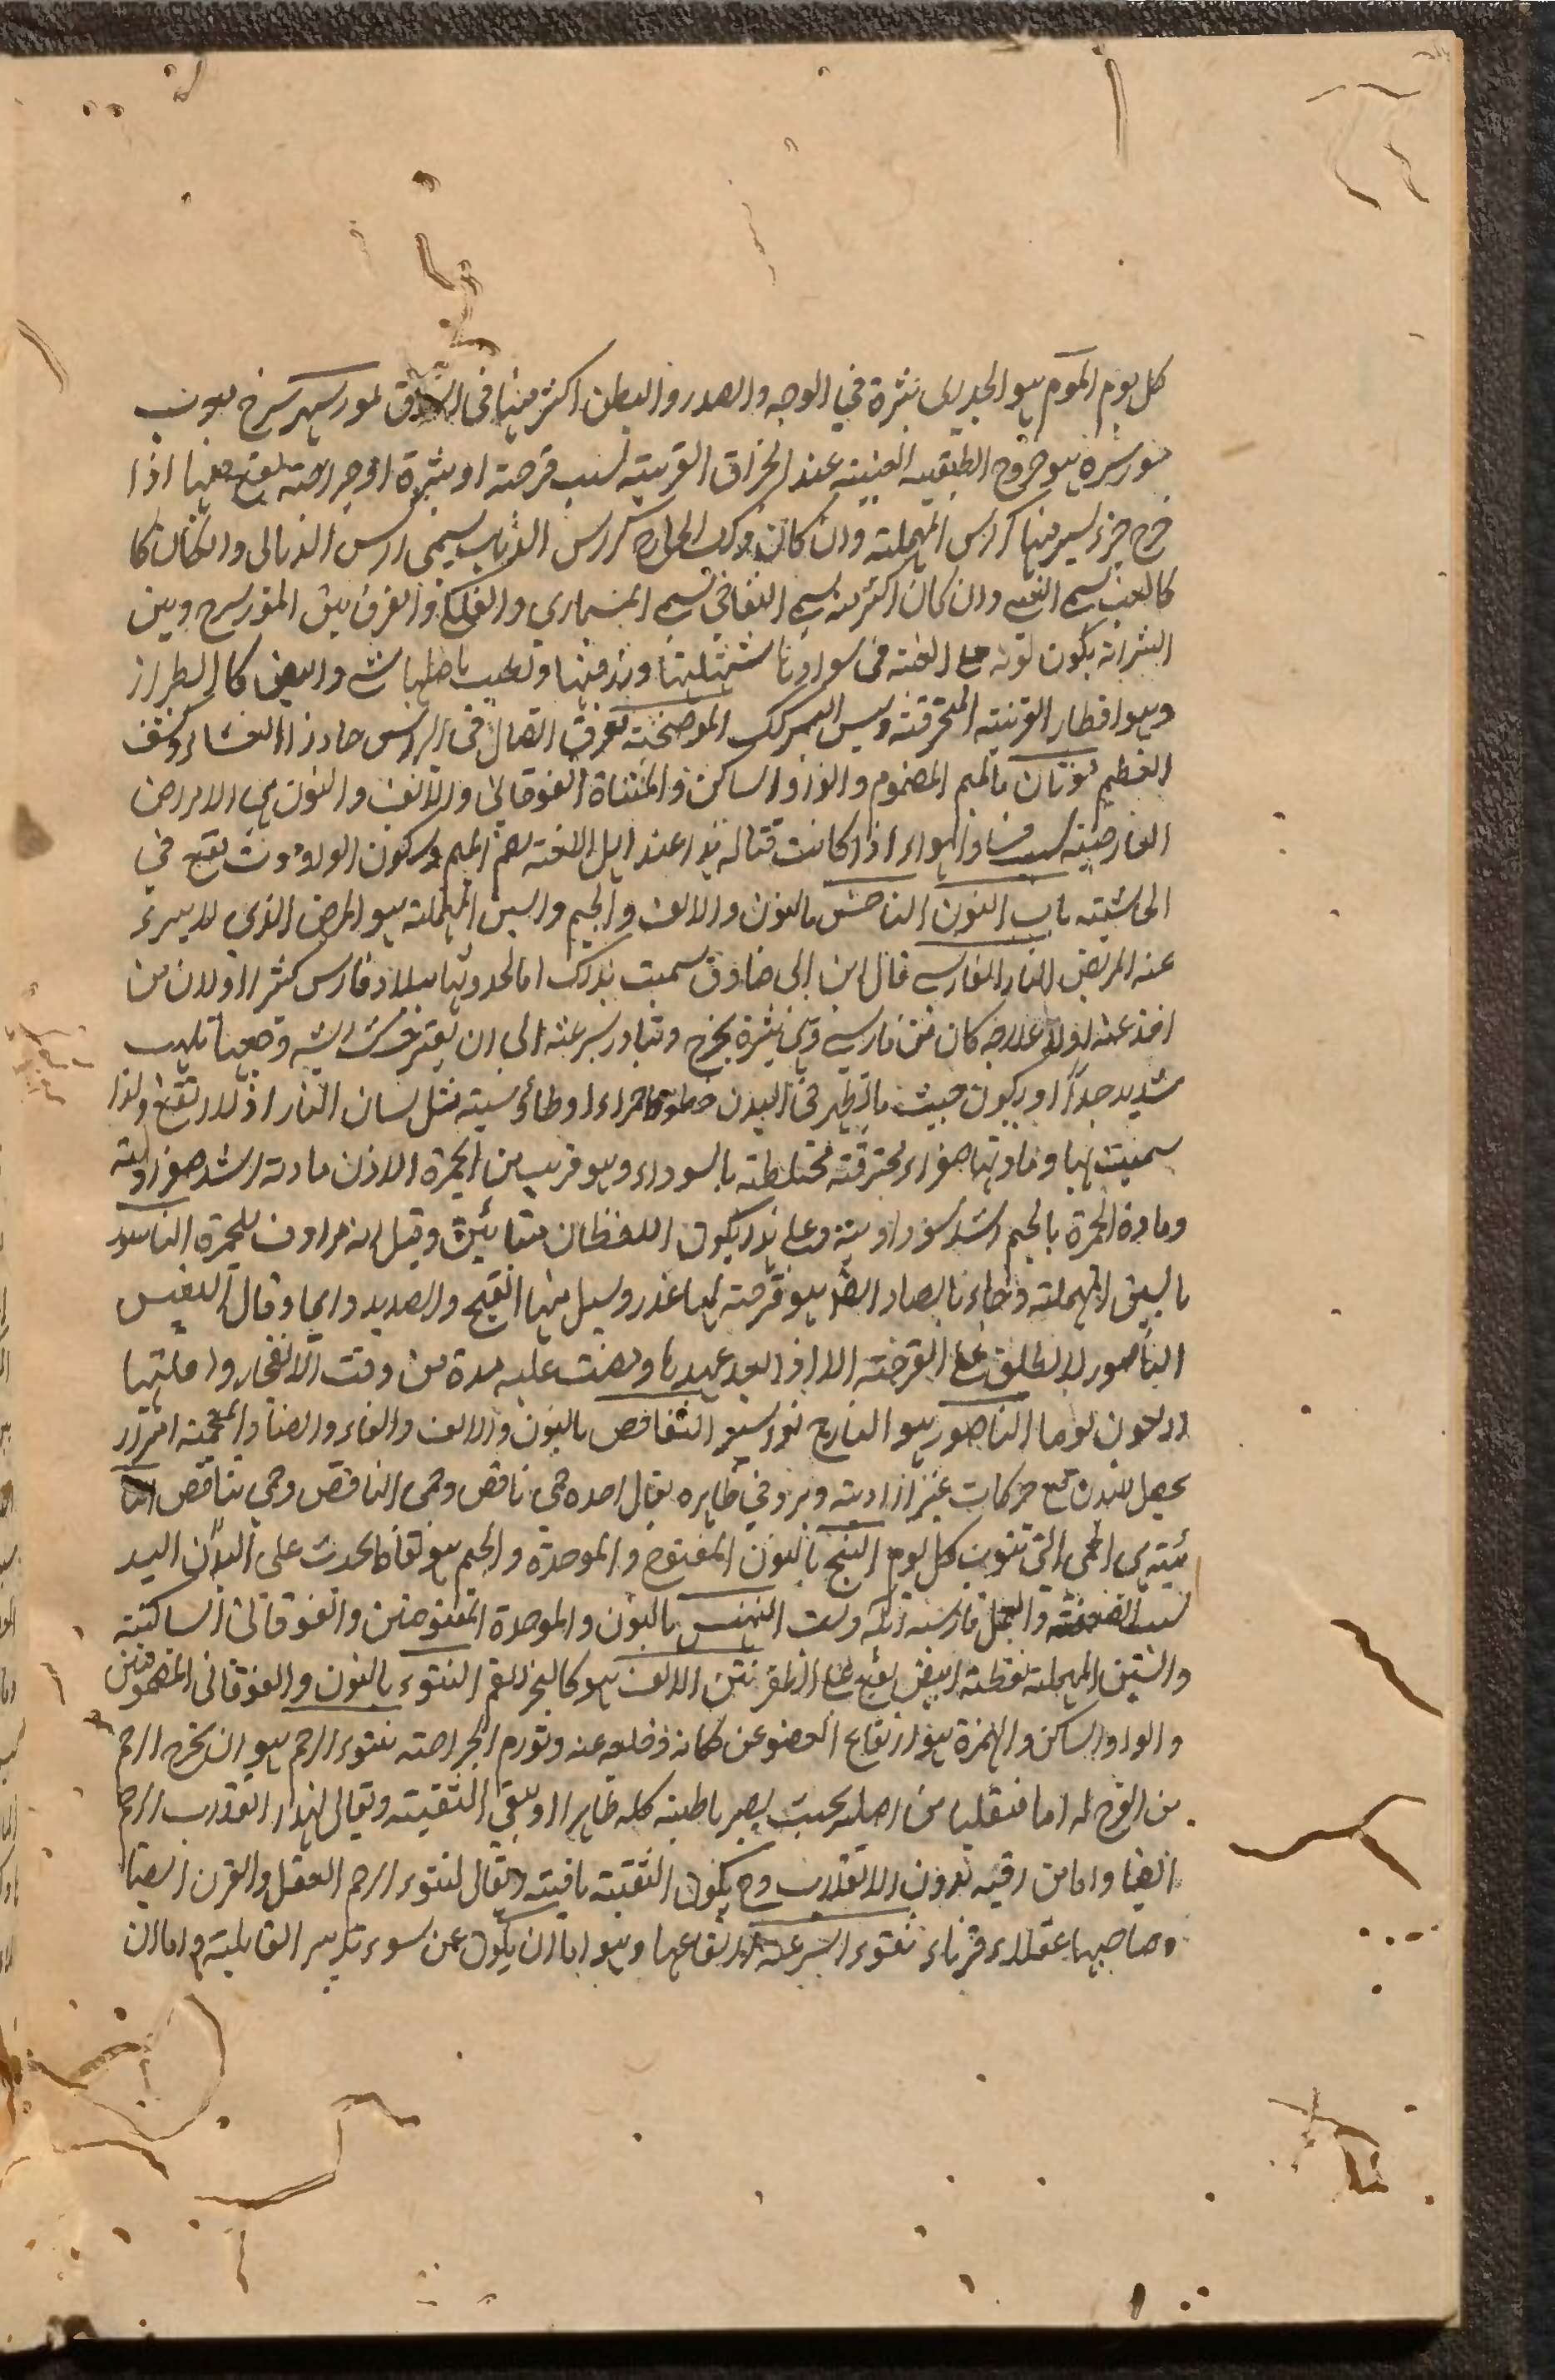 كل يوم الموم هو الجدرى بثرة في الوجه والصدر والبطن اكثر منها فى الساق
مورسرج هو خروج الطبقه العنبية عند انخراق القرنية لسبب قرحته او بثرة او جراحته يقع فيها اذا
خرج جزء يسير منها كراس النملة وان كان كراس الذباب يسمى راس الذبابى وان كان كا
كالعنب يسمى العنبى وان كان اكثر منه يسمى التفاحى يسمى المسمارى والفلكى والفرق بين المورسرج وبين
البثرات يكون لونه فى سوادها شهلتها وزرقتها
وهو اقطار القرنية المتخرقة الموضحة تفرق اتصال فى الراس حادث الغشاء وكشف
العظم موتان بالميم المضموم والواو الساكن والمثناة الفوقانى والالف والنون هى الامراض
العارضية لسبب فساد الهواء اذا كانت قتاله هذا عند اهل اللغة بضم الميم وسكون الواو موت يقع فى
الماشية باب النون الناجس بالنون والالف والجيم والسين المهملة هو المرض الذى لا يبرء
عنه المريض النار الفارسى قال ابن ابى صادق سميت بذلك اما لحدوثها ببلاد فارس كثيرا اولان من
اخذ عنه اولا علاجه كان من فارس وهى بثرة يخرج وتبادر بسرعته الى ان يصير خشكريشه وجعها تلهب
شديد جدا او يكون حيث ما تظهر فى البدن خطوط حمراء او طاؤسية مثل لسان النار اذا ارتفع ولذا
سميت بها ومادتها صفراء محترقته مختلطته بالسوداء وهو قريب من الجمرة الا ان مادته اشد صفراوية
ومادة الجمرة بالجيم اشد سوداوية وعلى هذا يكون اللفظان متباينين وقيل انه مرادف للجمرة الناسور
بالسين المهملته وجاء بالصاد ايضا هو قرحته لها غور ويسيل منها القيح والصديد دايما وقال النفيس
الناصور لا يطلق على القرحته الا اذا بعد عهدها ومضت عليه مدة من وقت الانفجار واقلتها
اربعون يوما الناصور هو الخارج النافض بالنون والالف والفاء والضاد المعجمة اهتزاز
يحصل للبدن مع حركات غير ارادية وبرد فى ظاهره يقال اخذه حمى نافض وحمى النافض وحمى بنافض النا
ئبته هى الحمى التى تنوب كل يوم النبج بالنون المفتوح والموحدة والجيم هو نفاطة يحدث على البدن اليد
لسبب والعمل فارسيه النبتس بالنون والموحدة المفتوحتين والفوقانى الساكنته
والسين المهملته نقطته ابيض يقع على الظفر نتن الانف هو كالبخر للفم النتوء بالنون والفوقانى المضمومين
والواو الساكن والهمزة هو ارتفاع العضو عن مكانه وخلعه عنه وتورم الجراحته نتوء الرحم هو ان يخرج الرحم
من الفرج اما منقلبا من اصله بحيث يصير باطنه كله ظاهرا ويبقى الثقبته ويقال لهذا انقلاب الرحم
ايضا واما من رقبه بدون الانقلاب وح يكون الثقبته باقيته ويقال لنتوء الرحم العفل والقرن ايضا
وصاحبها عفلاء وقرناء نتوء السره ارتفاعها وهو اما ان يكون عن سوء تدبير القابلته واما ان